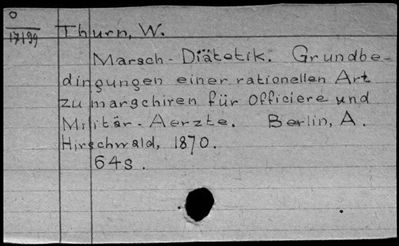 O
17139
Thurn, W.
Marsch-Diätetik. Grundbe-
dingungen einer rationellen Art
zu marschiren für Officiere und
Militär-Aerzte. Berlin, A.
Hirschwald, 1870.
64 S.